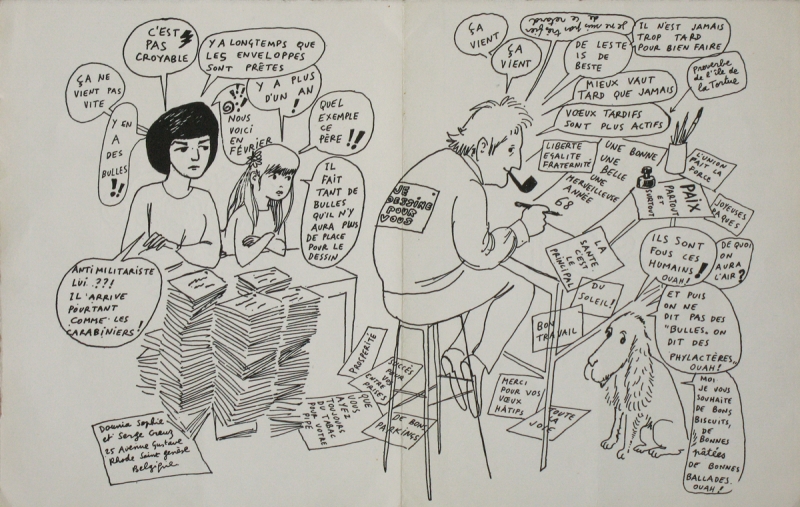 C'EST
PAS
CROYABLE
Y A LONGTEMPS QUE
LES ENVELOPPES
SONT PRÊTES
ÇA NE
VIENT PAS
VITE
Y EN
A
DES
BULLES !!
?!!
NOUS
VOICI
EN
FÉVRIER
Y A PLUS
D'UN AN !
QUEL
EXEMPLE
CE
PÈRE !!
IL
FAIT
TANT DE
BULLES
QU'IL N'Y
AURA PLUS
DE PLACE
POUR LE
DESSIN
ANTIMILITARISTE
LUI ??!
IL ARRIVE
POURTANT
COMME LES
CARABINIERS !
Dounia Sophie
et Serge Creuz
25 Avenue Gustave
Rhode Saint Genèse
Belgique
ÇA
VIENT
ÇA
VIENT
je ne suis pas très fier
de ce retard
DE LESTE
IS DE
BESTE
IL N'EST JAMAIS
TROP TARD
POUR BIEN FAIRE
MIEUX VAUT
TARD QUE JAMAIS
Proverbe
de l'île de
la Tortue
VOEUX TARDIFS
SONT PLUS ACTIFS
JE
DESSINE
POUR
VOUS
LIBERTÉ
ÉGALITÉ
FRATERNITÉ
UNE BONNE
UNE BELLE
UNE
MERVEILLEUSE
ANNÉE
68
L'UNION
FAIT LA
FORCE
PAIX
PARTOUT
ET
SURTOUT
JOYEUSES
PÂQUES
LA
SANTÉ
C'EST
LE
PRINCIPAL
DU
SOLEIL !
BON
TRAVAIL
PROSPÉRITÉ
SUCCÈS
POUR
VOS
ENTRE
PRISES
QUE
VOUS
AYEZ
TOUJOURS
DU TABAC
POUR VOTRE
PIPE
DE BONS
PARKINGS
MERCI
POUR VOS
VŒUX
HÂTIFS
TOUTE
LA
JOIE
ILS SONT
FOUS CES
HUMAINS !
OUAH !
DE QUOI
ON
AURA
L'AIR ?
ET PUIS
ON NE
DIT PAS DES
"BULLES. ON
DIT DES
PHYLACTÈRES."
OUAH !
MOI
JE VOUS
SOUHAITE
DE BONS
BISCUITS,
DE
BONNES
PÂTÉES
DE BONNES
BALLADES.
OUAH !